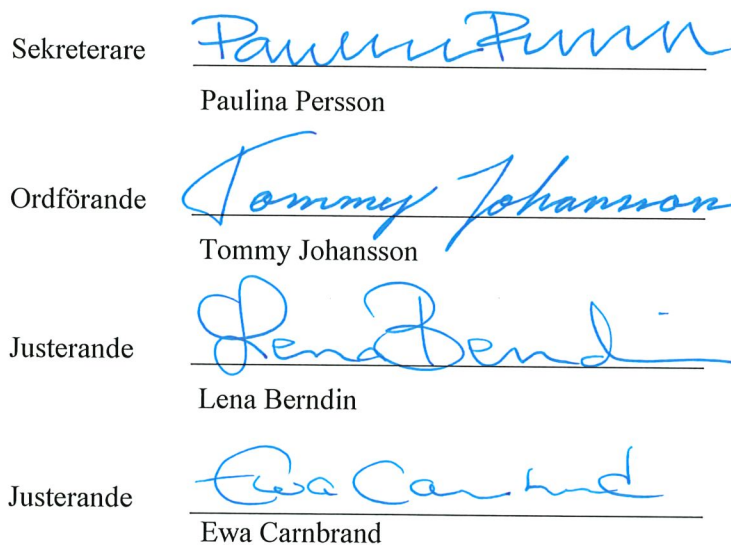 Sekreterare Paulina Persson
Paulina Persson
Ordförande Tommy Johansson
Tommy Johansson
Justerande Lena Berndin
Lena Berndin
Justerande Ewa Carnbrand
Ewa Carnbrand